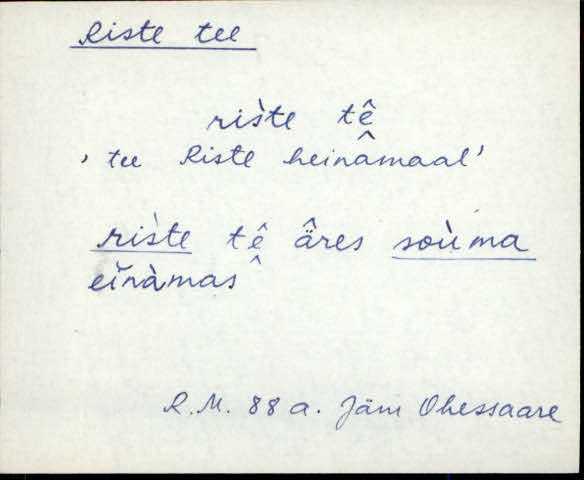 Riste tee
rište tê̬
' tee Riste heinamaal'
rište tê̬ ä̂res soùma
eı̆nàmas
R.M. 88 a. Jäm Ohessaare